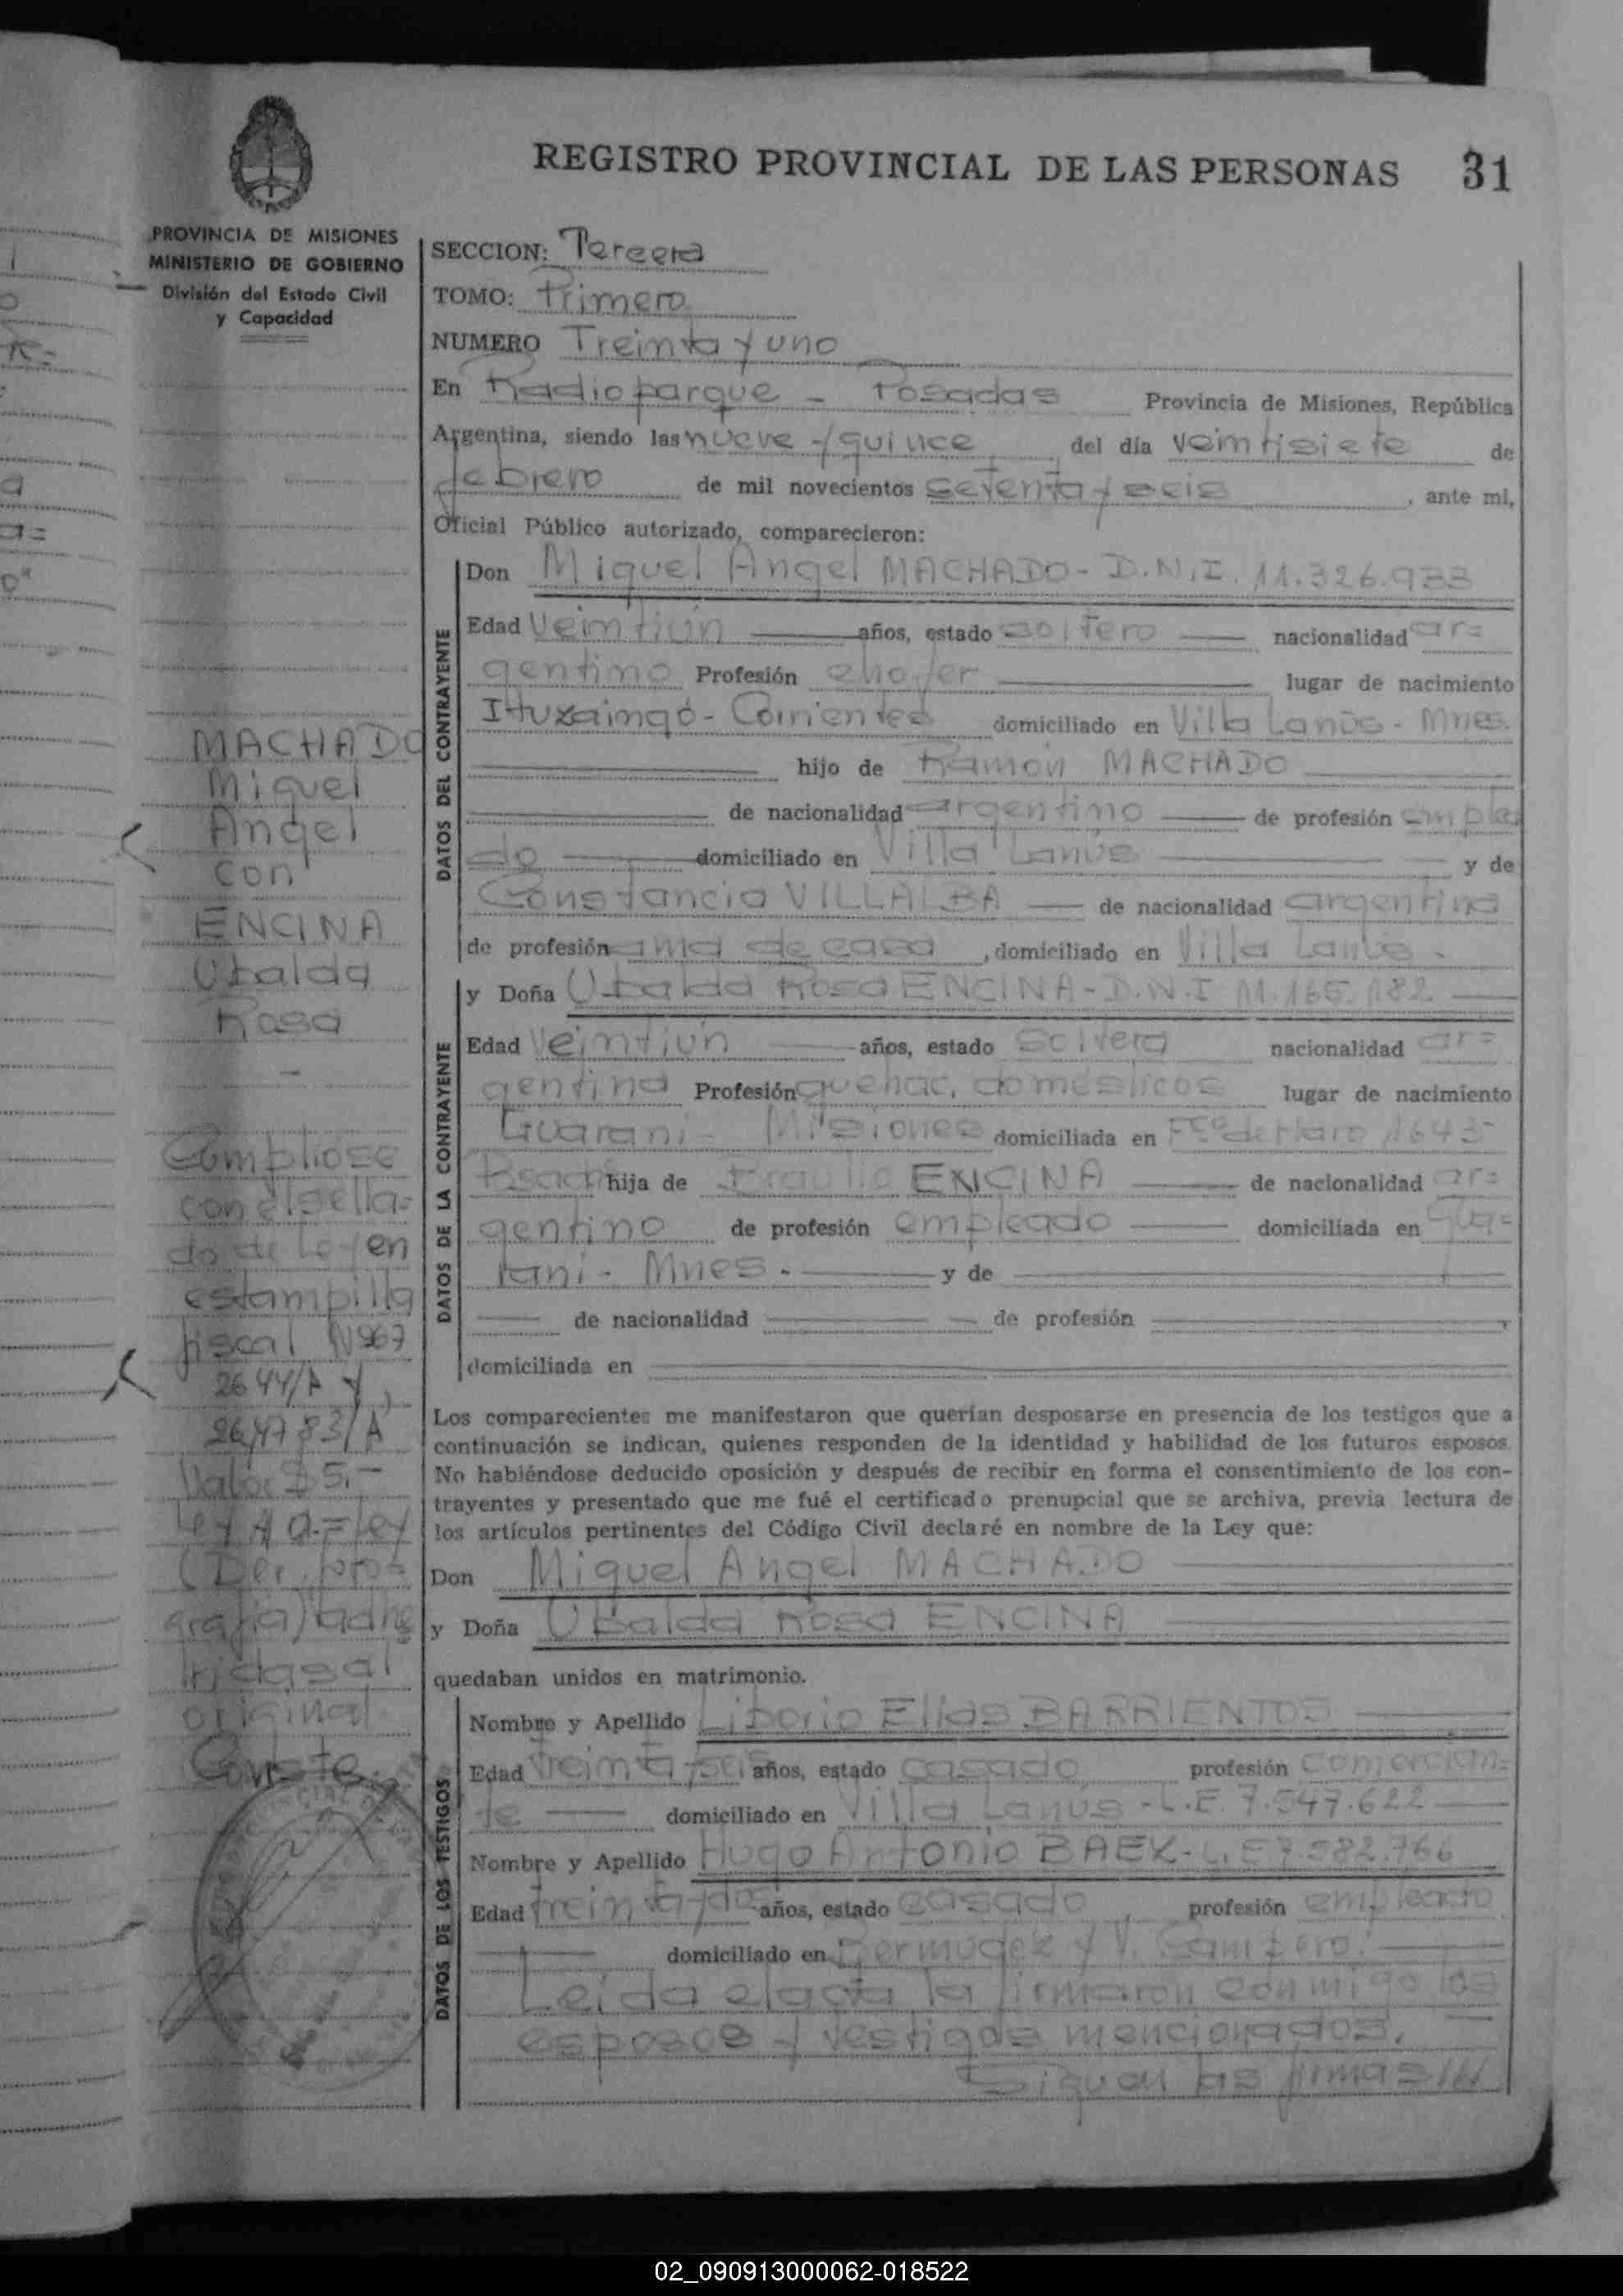 REGISTRO PROVINCIAL DE LAS PERSONAS 31
PROVINCIA DE MISIONES
MINISTERIO DE GOBIERNO
División del Estado Civil
y Capacidad
SECCION: Tercera
TOMO: Primero
NUMERO Treinta y uno
En Radioparque - Posadas Provincia de Misiones, República
Argentina, siendo las nueve y quince del día veintisiete de
febrero de mil novecientos setenta y seis, ante mí,
Oficial Público autorizado, comparecieron:
DATOS DEL CONTRAYENTE
Don Miguel Angel MACHADO - D.N.I. 11.326.933
Edad Veintiún años, estado soltero nacionalidad ar=
gentino Profesión chofer lugar de nacimiento
Ituzaingó - Corrientes domiciliado en Villa Lanús - Mnes.
hijo de Ramón MACHADO
de nacionalidad argentino de profesión emplea
do domiciliado en Villa Lanús y de
Constancia VILLALBA de nacionalidad argentina
de profesión ama de casa, domiciliado en Villa Lanús -
DATOS DE LA CONTRAYENTE
y Doña Ubalda Rosa ENCINA - D.N.I 11.165.182
Edad Veintiún años, estado soltera nacionalidad ar=
gentina Profesión quehac. domésticos lugar de nacimiento
Guaraní - Misiones domiciliada en Fco de Haro 1643-
Posadas hija de Braulio ENCINA de nacionalidad ar=
gentino de profesión empleado domiciliada en Gua=
raní - Mnes - y de
de nacionalidad de profesión
domiciliada en
Los comparecientes me manifestaron que querían desposarse en presencia de los testigos que a
continuación se indican, quienes responden de la identidad y habilidad de los futuros esposos.
No habiéndose deducido oposición y después de recibir en forma el consentimiento de los con-
trayentes y presentado que me fué el certificado prenupcial que se archiva, previa lectura de
los artículos pertinentes del Código Civil declaré en nombre de la Ley que:
Don Miguel Angel MACHADO
y Doña Ubalda Rosa ENCINA
quedaban unidos en matrimonio.
DATOS DE LOS TESTIGOS
Nombre y Apellido Liborio Elías BARRIENTOS
Edad treinta y seis años, estado casado profesión comercian=
te domiciliado en Villa Lanús - L.E. 7.547.622
Nombre y Apellido Hugo Antonio BAEZ - L.E 7.582.766
Edad treinta y dos años, estado casado, profesión empleado
domiciliado en Bermudez y V.
Leída el acta la firmaron conmigo los
esposos y testigos mencionados.
Siguen las firmas///
MACHADO
Miguel
Angel
con
ENCINA
Ubalda
Rosa
-
Cumplióse
con el sella=
do de Ley en
estampilla
fiscal Nº 967
2644/A y
264783/A
Valor $ 5.-
Ley
(Der. foto=
grafía) adhe
ridas al
original
Conste.
02_090913000062-018522